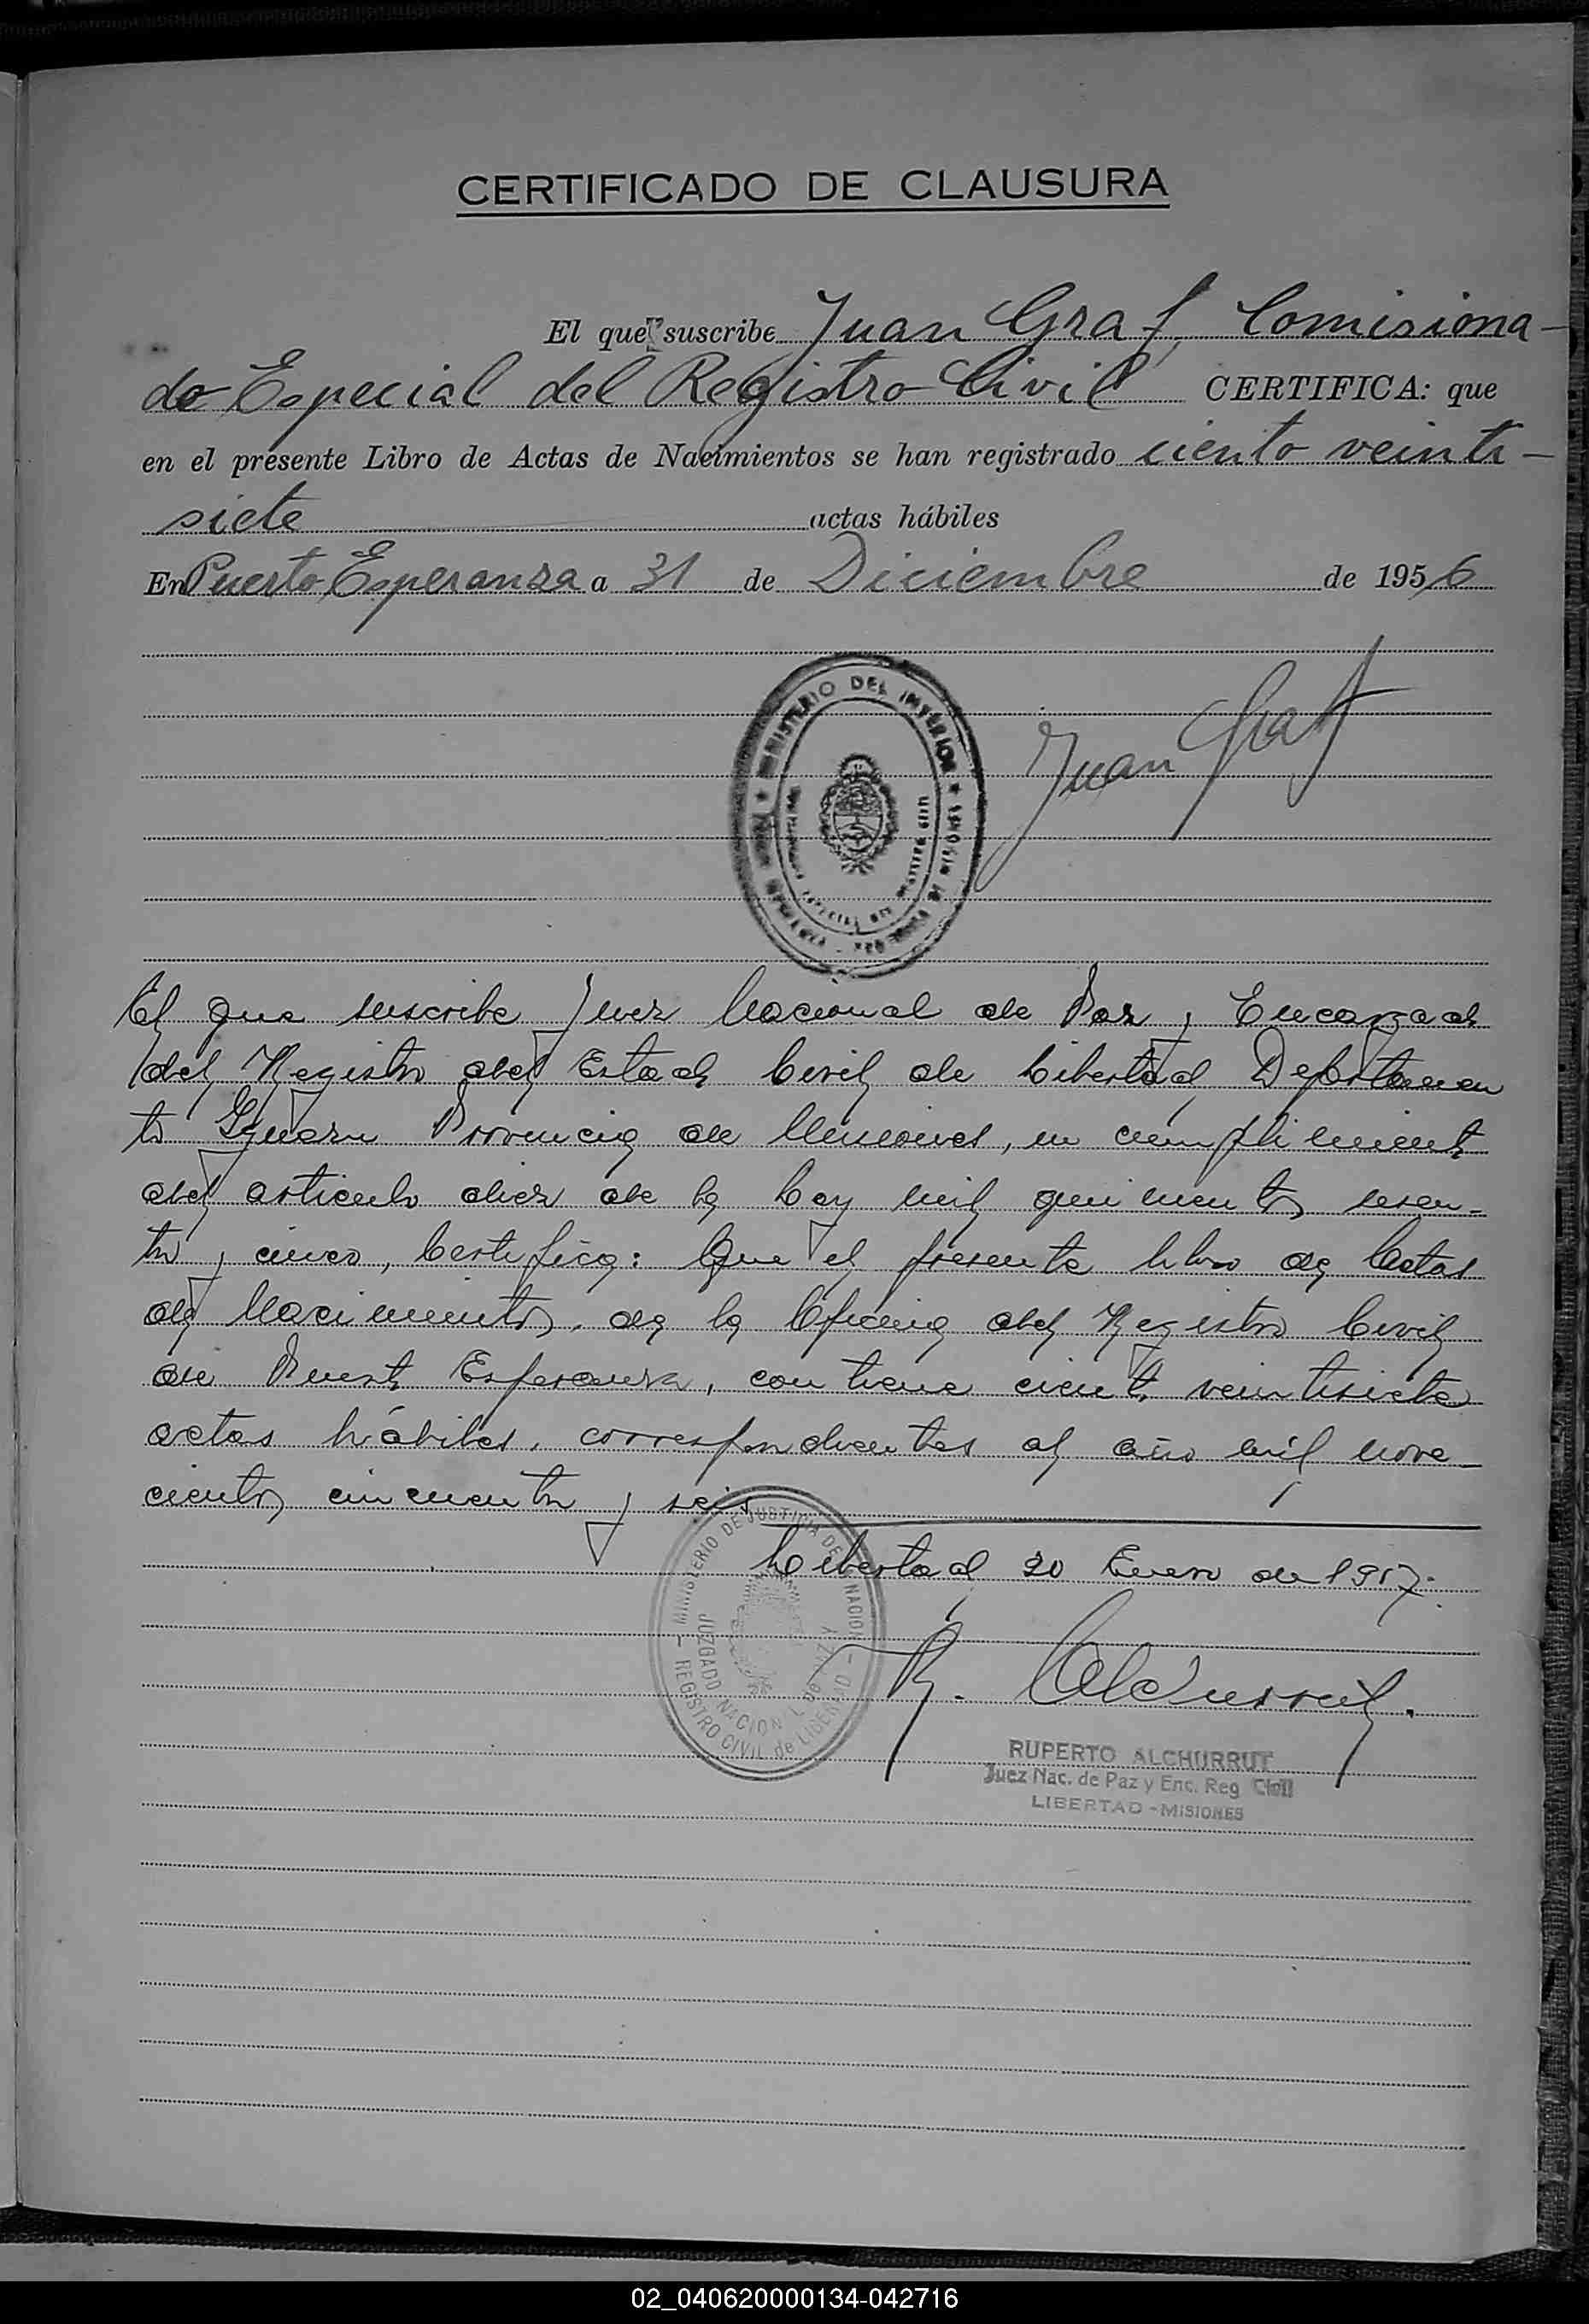 CERTIFICADO DE CLAUSURA
El que suscribe Juan Graf, Comisiona-
do Especial del Registro Civil CERTIFICA: que
en el presente Libro de Actas de Nacimientos se han registrado ciento veinti-
siete actas hábiles
En Puerto Esperanza a 31 de Diciembre de 1956
MINISTERIO DEL INTERIOR
Juan Graf
El que suscribe Juez Nacional de Paz y Encargado
del Registro del Estado Civil de Libertad, Departamen
to Iguazu Provincia de Misiones, en cumplimiento
del articulo diez de la Ley mil quinientos sesen-
ta y cinco, Certifica: Que el presente libro de Actas
de Nacimientos, de la Oficina del Registro Civil
de Puerto Esperanza, contiene ciento veintisiete
actas hábiles, correspondientes al año mil nove-
cientos cincuenta y seis
Libertad, 20 Enero de 1957.
MINISTERIO DE JUSTICIA DE NACION
JUZGADO NACIONAL DE PAZ Y
REGISTRO CIVIL de LIBERTAD
R. Alchurrut.
RUPERTO ALCHURRUT
Juez Nac. de Paz y Enc. Reg. Civil
LIBERTAD - MISIONES
02_040620000134-042716